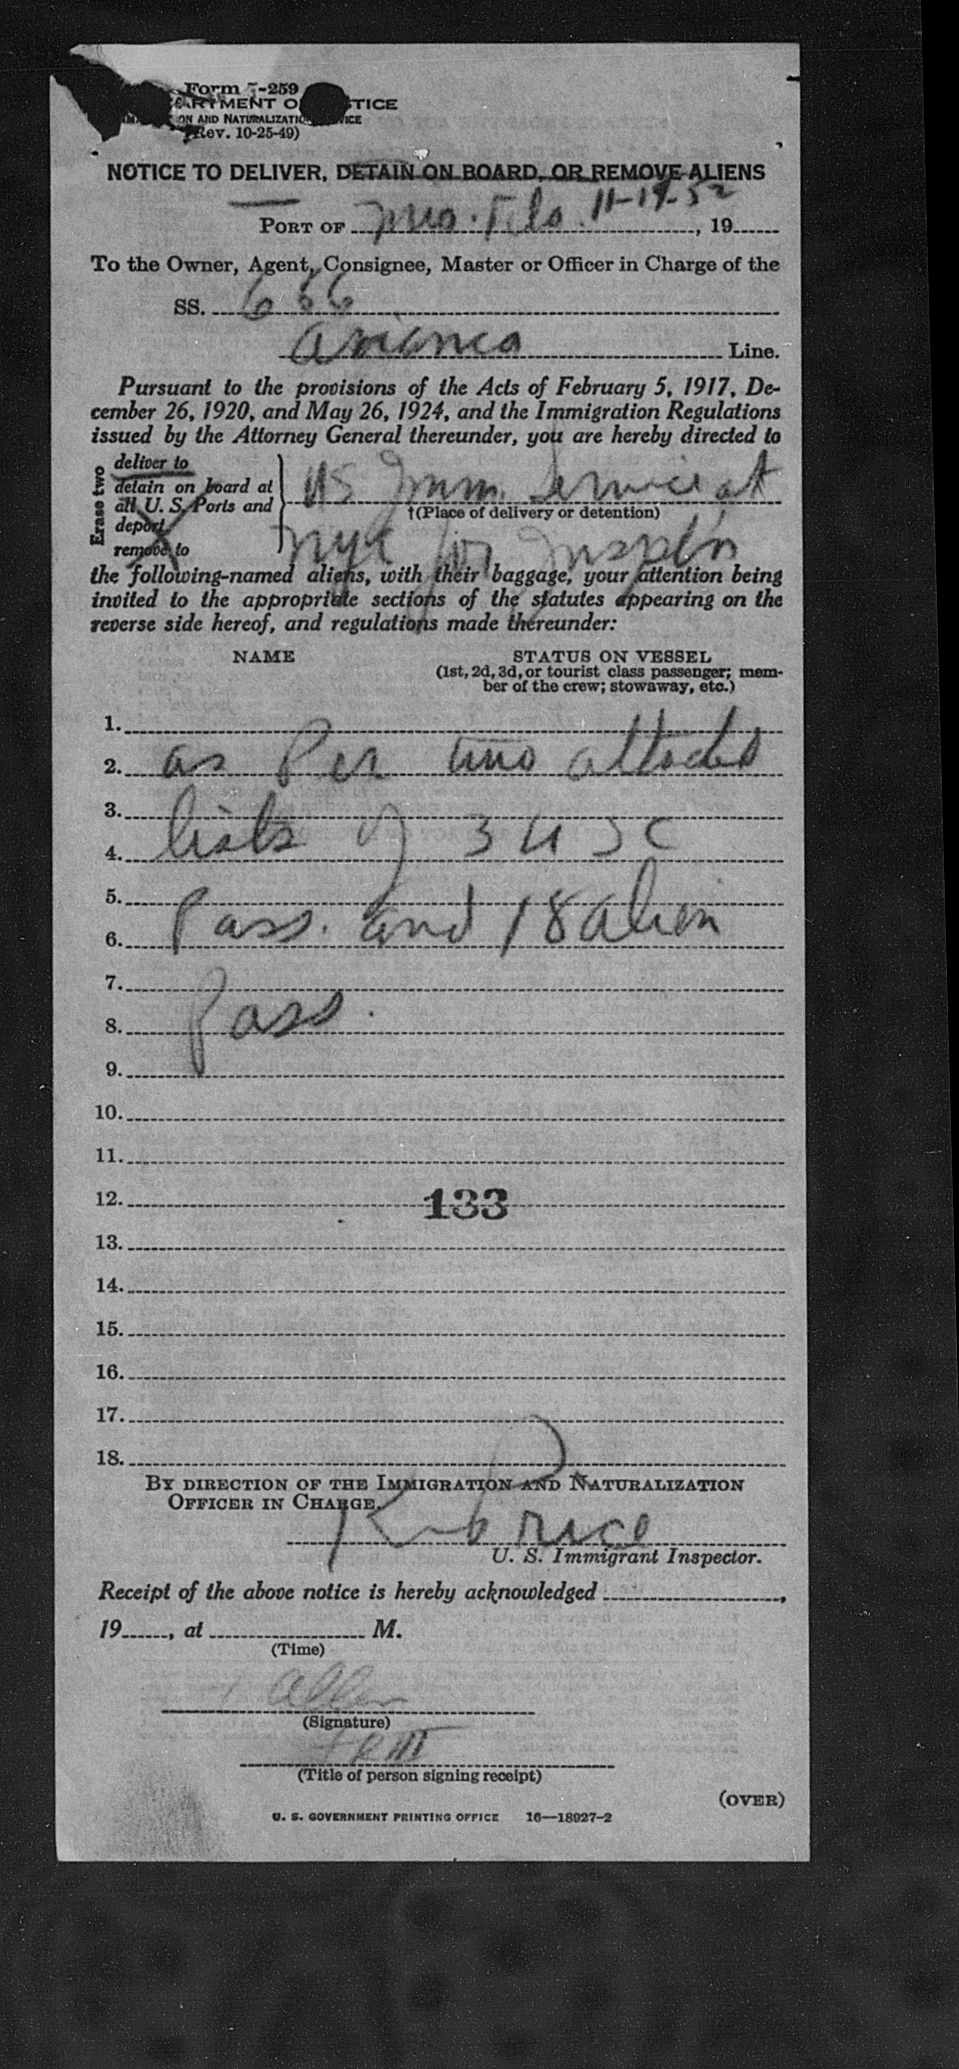 Form -259
DEPARTMENT OF JUSTICE
ON AND NATURALIZATION SERVICE
(Rev. 10-25-49)
NOTICE TO DELIVER, DETAIN ON BOARD, OR REMOVE ALIENS
PORT OF Mia. Fla. 11-19-52, 19
To the Owner, Agent, Consignee, Master or Officer in Charge of the
SS. 666
Avianca Line.
Pursuant to the provisions of the Acts of February 5, 1917, De-
cember 26, 1920, and May 26, 1924, and the Immigration Regulations
issued by the Attorney General thereunder, you are hereby directed to
Erase two
deliver to
detain on board at
all U. S. Ports and
deport
remove to
US Imm. Service at
†(Place of delivery or detention)
NYC for Inspect'n
the following-named aliens, with their baggage, your attention being
invited to the appropriate sections of the statutes appearing on the
reverse side hereof, and regulations made thereunder:
NAME STATUS ON VESSEL
(1st, 2d, 3d, or tourist class passenger; mem-
ber of the crew; stowaway, etc.)
1.
2. as Per two attached
3.
4. lists of 3 USC
5.
6. Pass. and 18 alien
7.
8. Pass.
9.
10.
11.
12. 133
13.
14.
15.
16.
17.
18.
BY DIRECTION OF THE IMMIGRATION AND NATURALIZATION
OFFICER IN CHARGE.
Price
U. S. Immigrant Inspector.
Receipt of the above notice is hereby acknowledged ,
19, at M.
(Time)
Allen
(Signature)
(Title of person signing receipt)
(OVER)
U. S. GOVERNMENT PRINTING OFFICE 16—18927-2